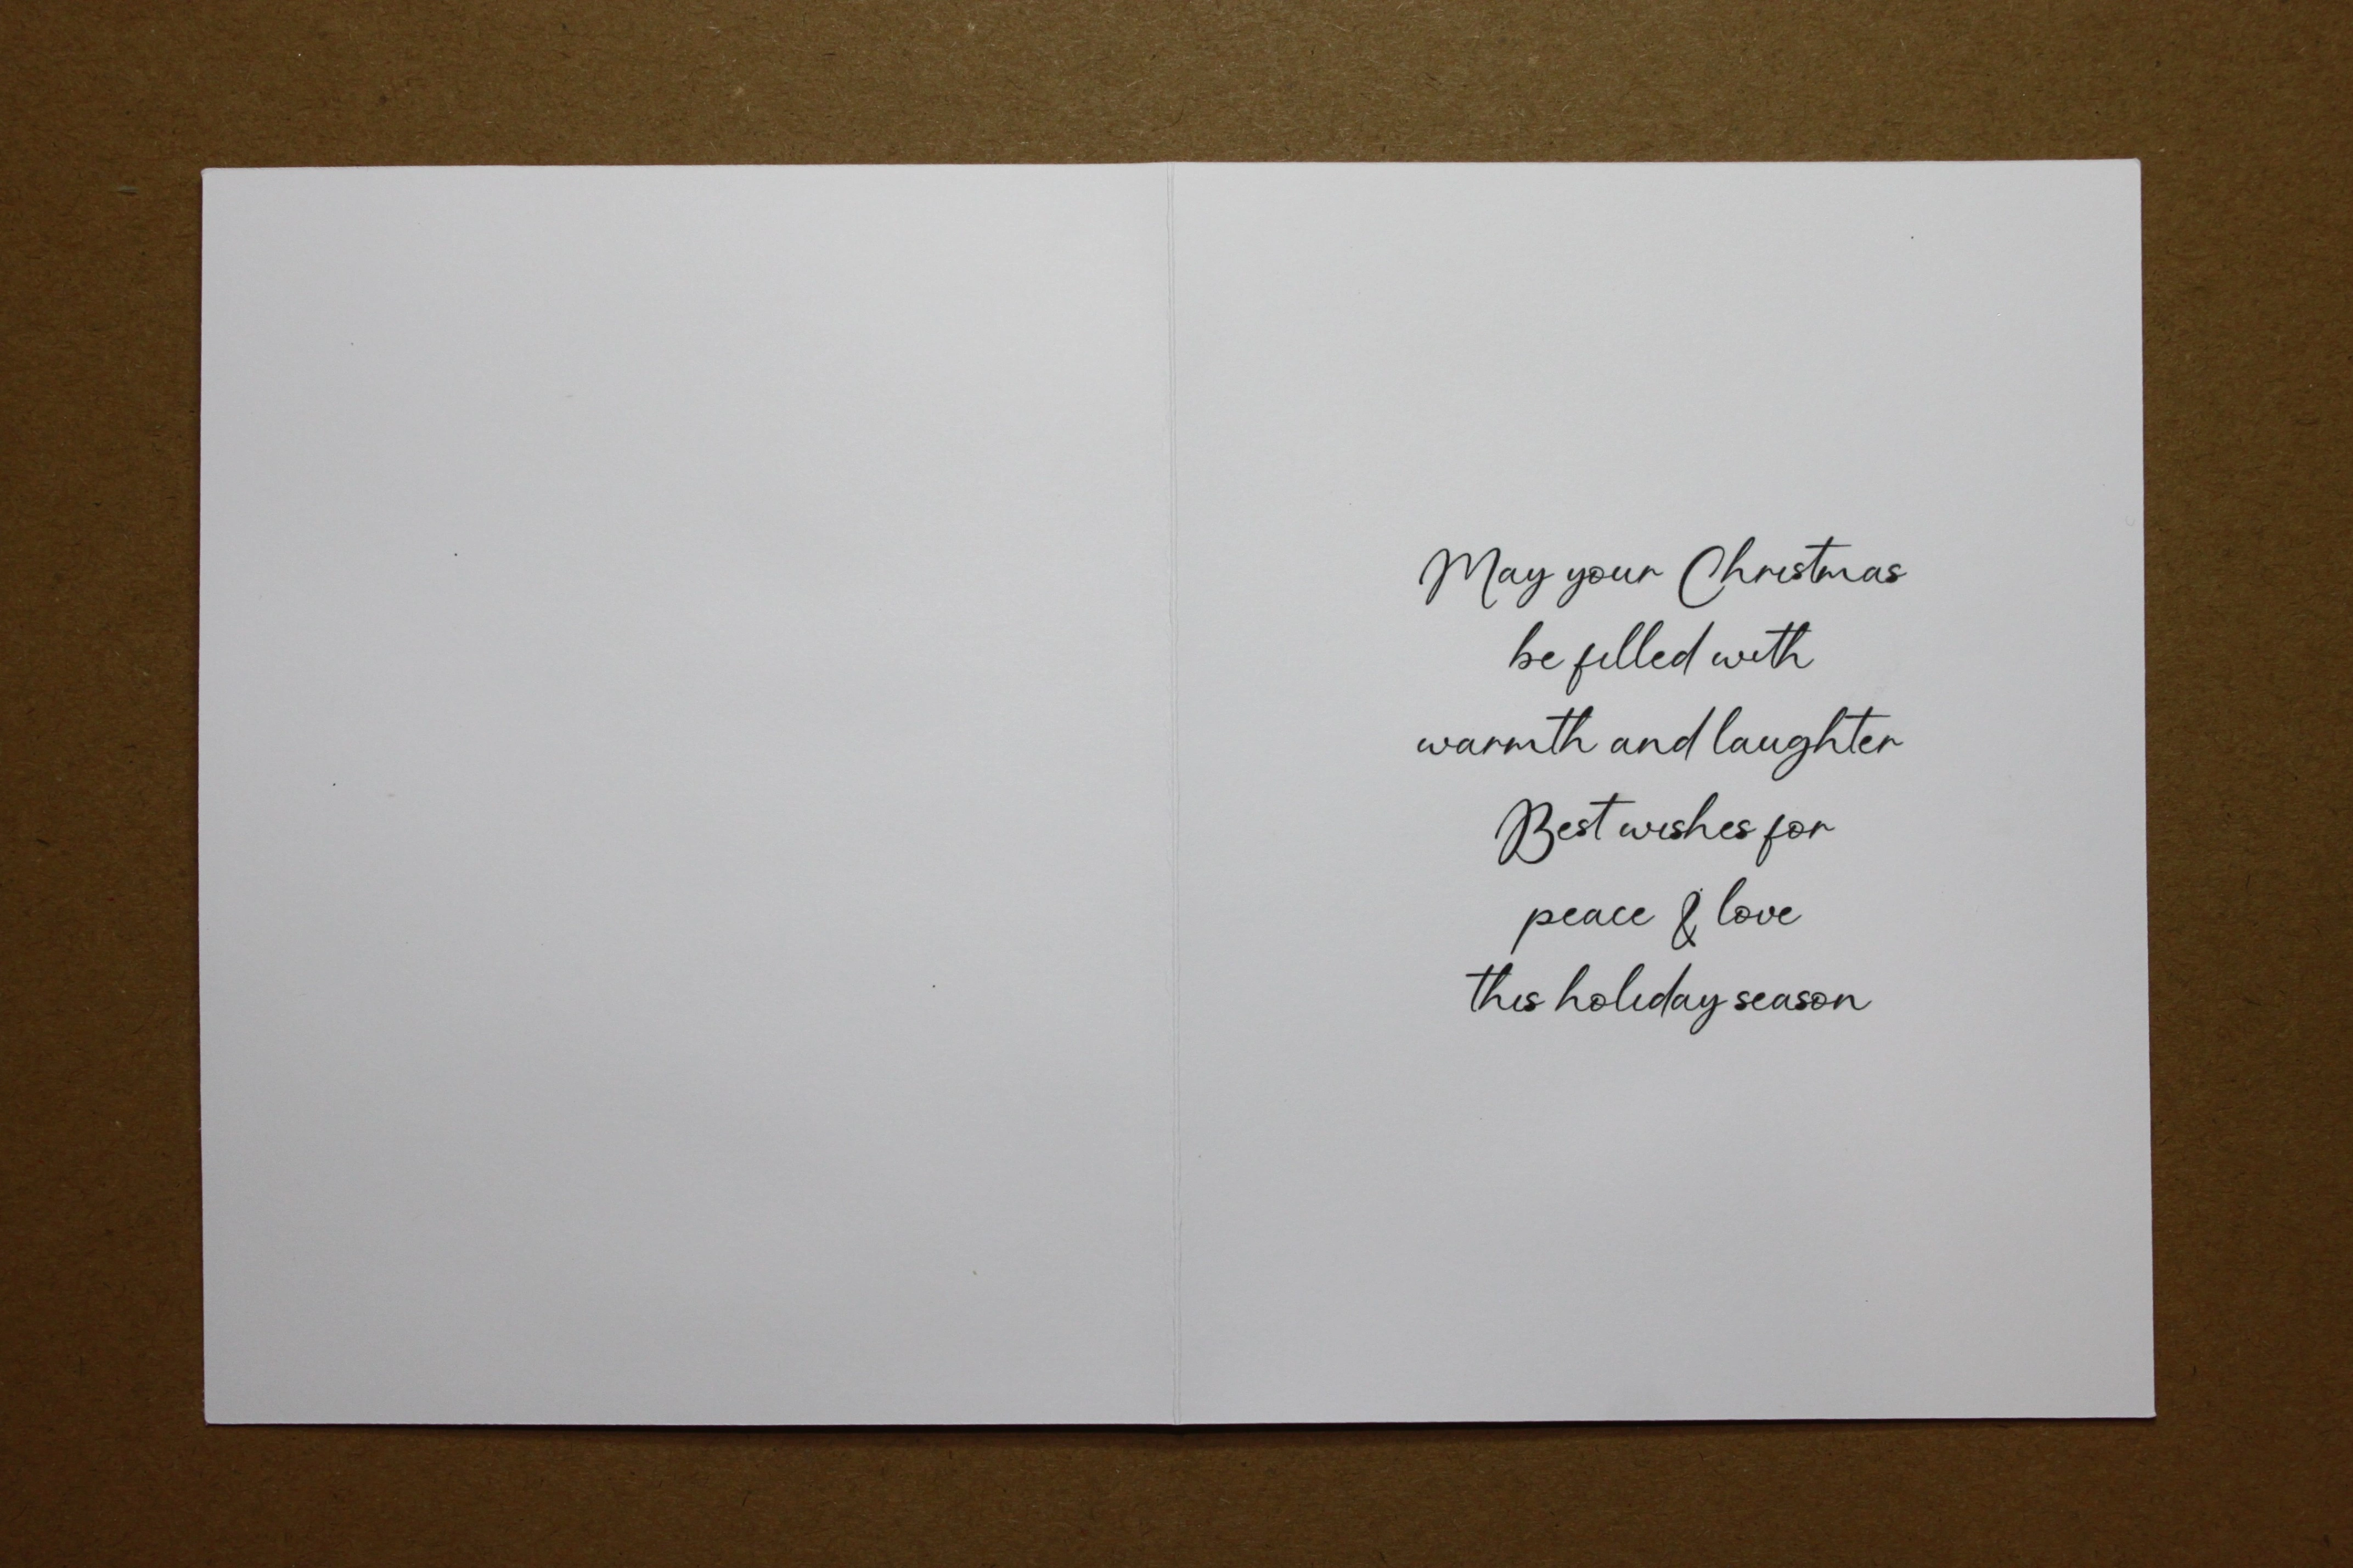 May your Christmas
be filled with
warmth and laughter
Best wishes for
peace & love
this holiday season